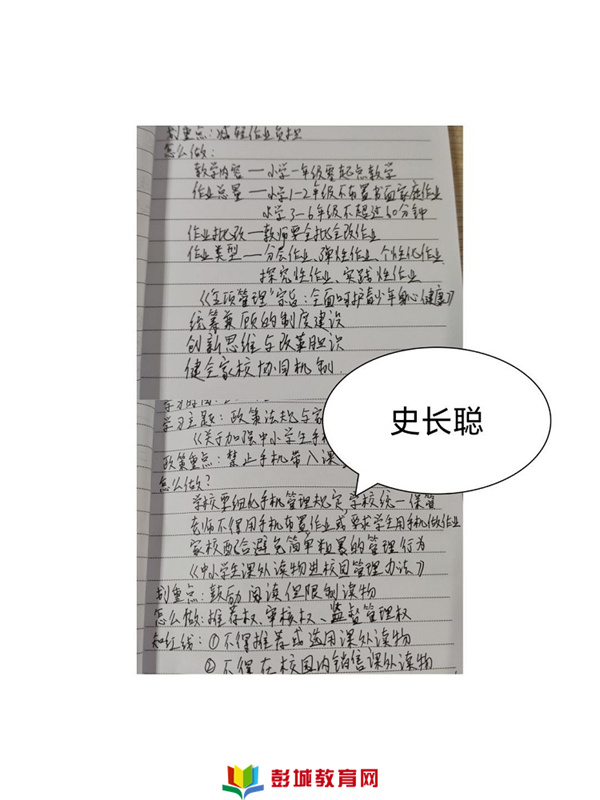 划重点：减轻作业负担
怎么做：
教学内容—小学一年级零起点教学
作业总量—小学1-2年级不布置书面家庭作业
小学3-6年级不超过60分钟
作业批改—教师要全批全改作业
作业类型—分层作业、弹性作业、个性化作业、
探究性作业、实践性作业
《五项管理》宗旨：全面呵护青少年身心健康》
统筹兼顾的制度建设
创新思维与改革胆识
健全家校协同机制.
学习主题：政策法规与家
《关于加强中小学生手机
政策重点：禁止手机带入课
怎么做？
学校要细化手机管理规定，学校统一保管
老师不得用手机布置作业或要求学生用手机做作业
家校配合避免简单粗暴的管理行为
《中小学生课外读物进校园管理办法》
划重点：鼓励阅读但限制读物
怎么做：推荐权、审核权、监督管理权
知红线：①不得推荐或选用课外读物
②不得在校园内销售课外读物
史长聪
彭城教育网